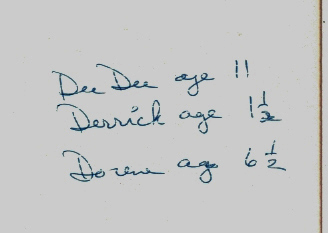 Dee Dee age 11
Derrick age 1 1/2
Dorene age 6 1/2